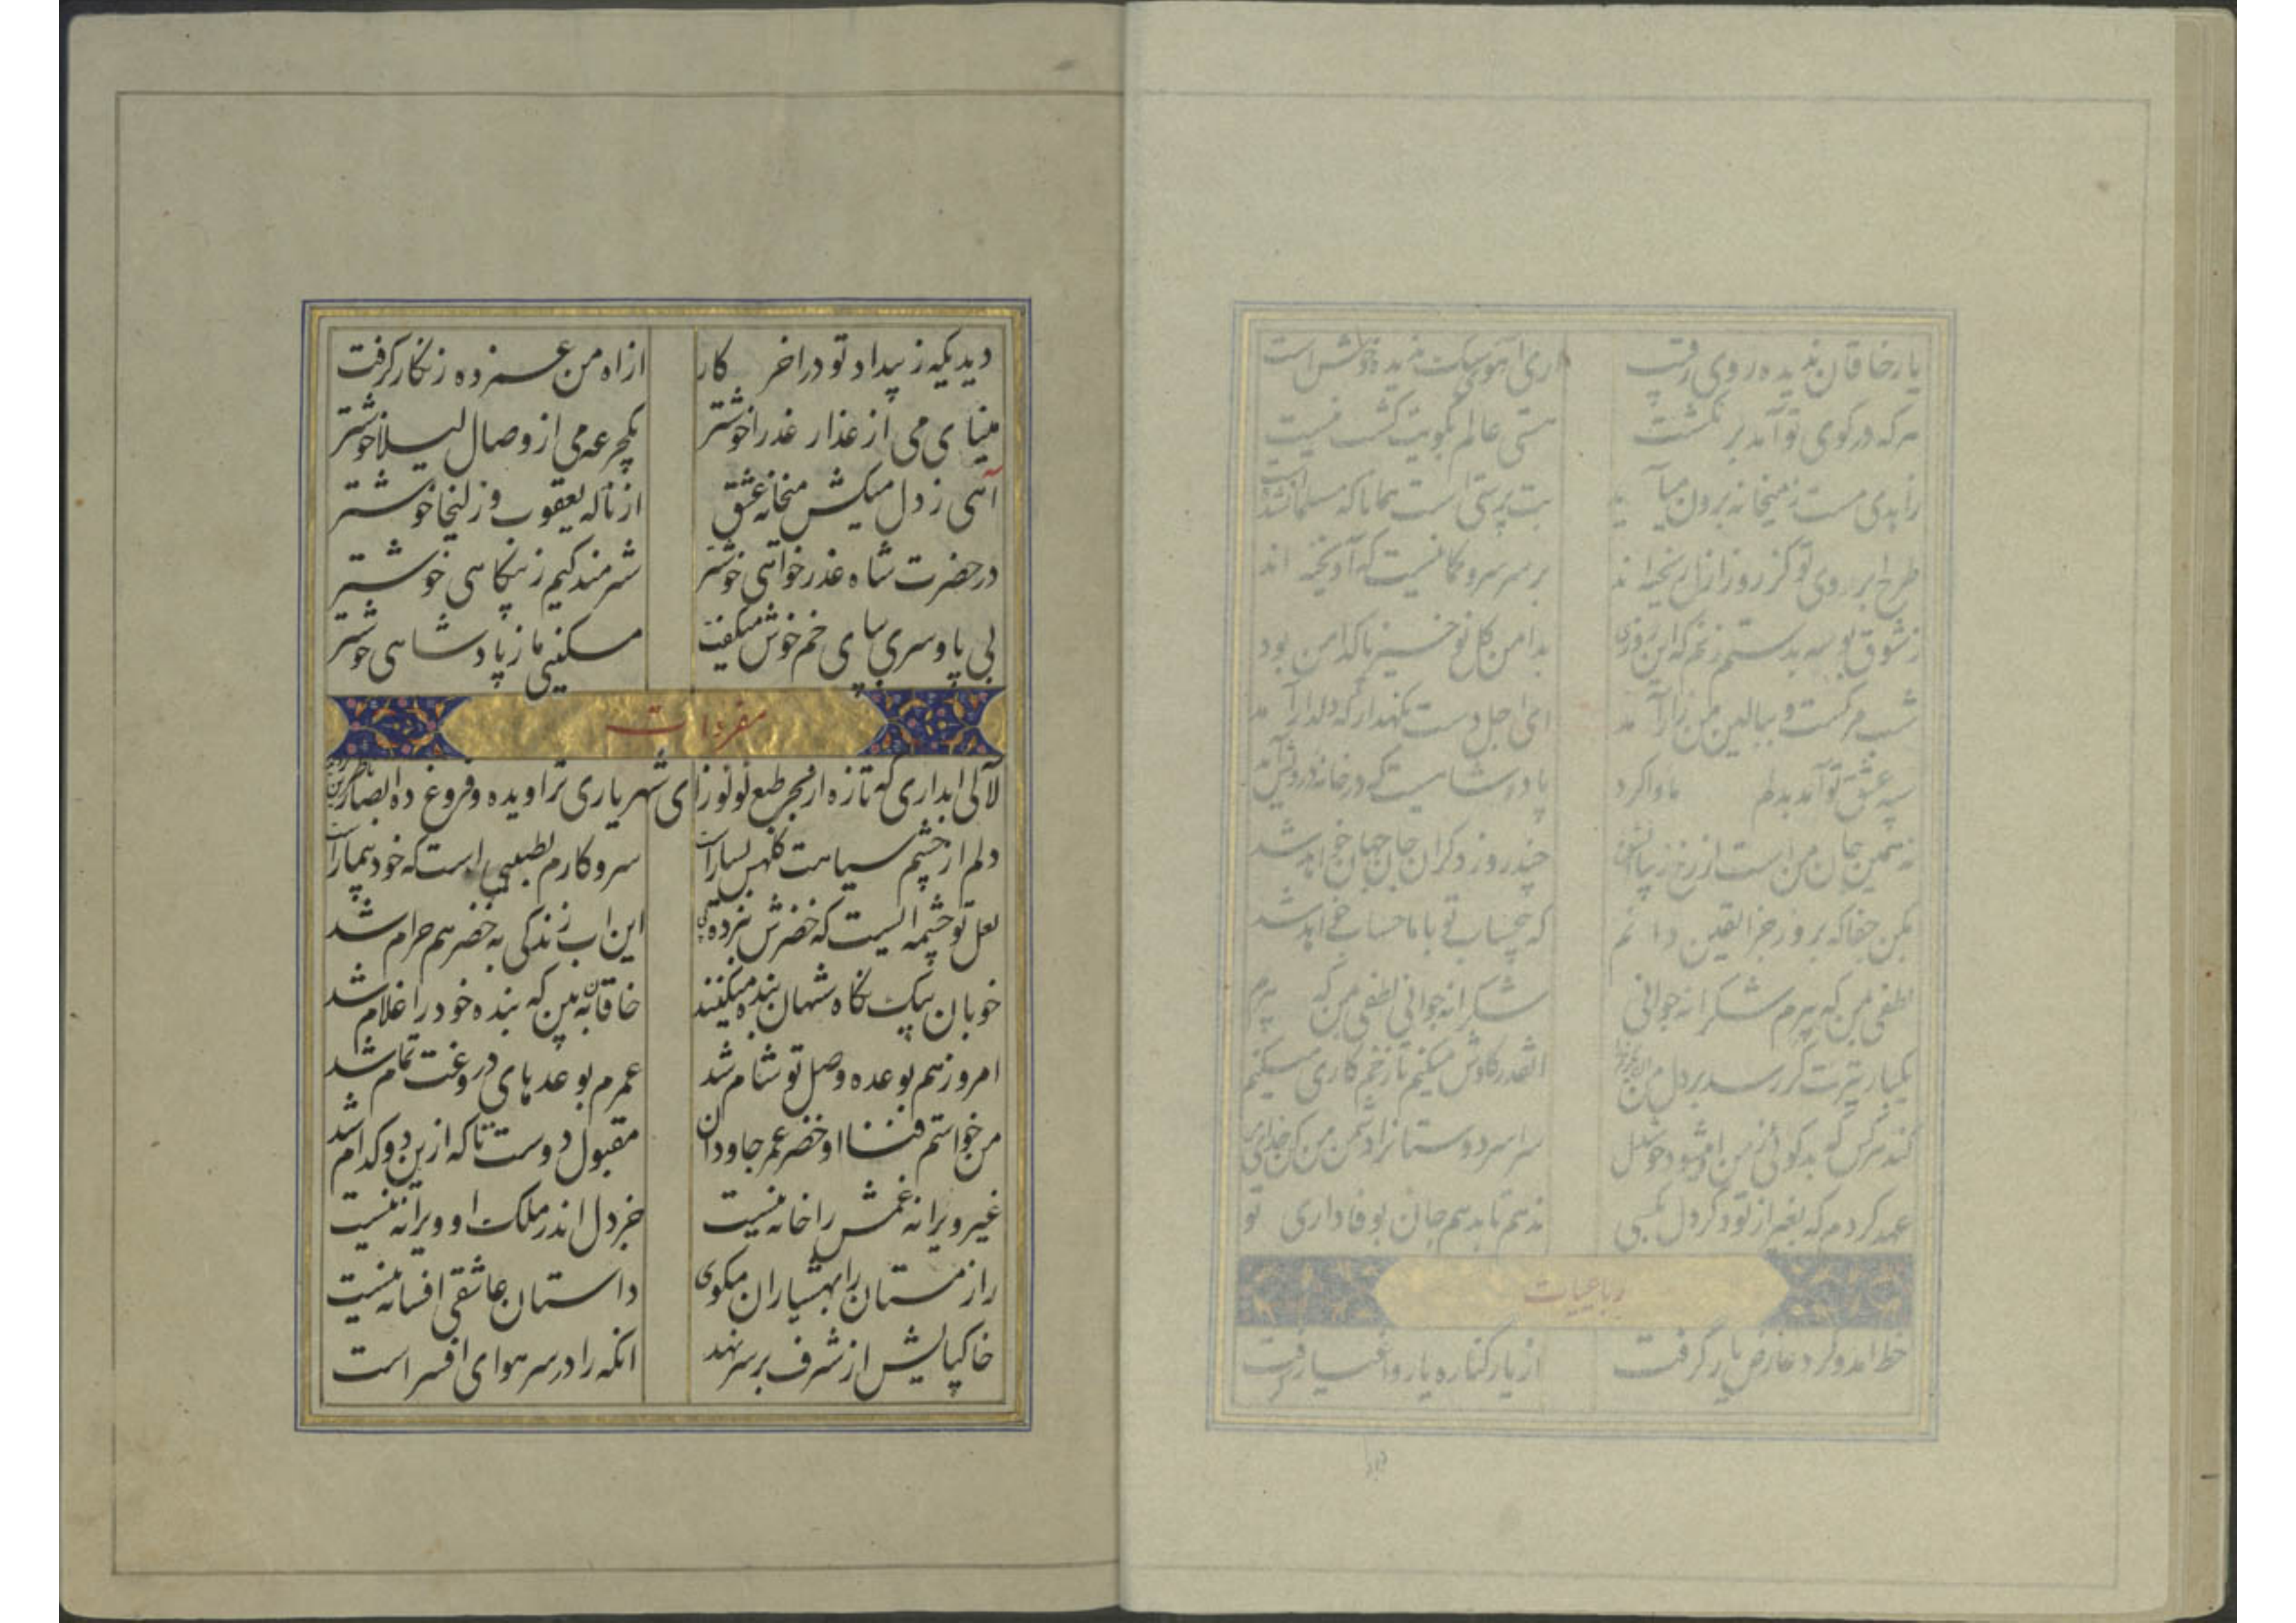 یار خاقان ندیده روی رقیب اری آهوی سک ندیده خوش است
هر که در کوی تو آمد بر نکشت هستی عالم بکویت کشت نیست
زاهدی مست ز میخانه برون میآید بت پرستی است همانا که مسلمان شده است
طرح ابروی تو کز روز ازل ریخته اند بر سر سرو کمانیست که آویخته اند
ز شوق بوسه بدستم زنم که این روزی بدامن کل نو خیز پاکدامن بود
شب مرکست و ببالین من زار آمد ای اجل دست نکهدار که دلدار آمد
سپه عشق تو آمد بدلم ماوا کرد پادشاهیست که در خانه درویش آمد
نه همین جان من است از رخ زیبا چند روز دکران جان جهان خواهد شد
بکن جفا که بروز جزا یقین دانم که بیحساب تو با ما حساب خواهد شد
لطفی بمن که پیرم شکرانه جوانی شکرانه جوانی لطفی بمن که پیرم
یکبار تیرت کر رسد بر دل من انقدر کاوش میکنم تا زخم کاری میکنم
کند هر کس که بدکوئی ز من او میشود خوشدل سراسر دوستانرا دشمن من کن خدای من
عهد کردم که بغیر از تو دکر دل بکسی ندهم تا بدهم جان بوفاداری تو
رباعیات
خط امد و کرد عارض یار کرفت از یار کناره یار و اغیار کرفت
دیدیکه ز بیداد تو در اخر کار از اه من غمزده زنکار کرفت
مینای می از عذار عذرا خوشتر یکجرعه می از وصال لیلا خوشتر
آهی ز دل میکش میخانه عشق از ناله یعقوب و زلیخا خوشتر
در حضرت شاه عذر خواهی خوشتر شرمندکیم ز بیکناهی خوشتر
بی پا و سری بپای خم خوش میکفت مسکینی ما ز پادشاهی خوشتر
مفردات
لآلی ابداری که تازه از بحر طبع لولو زای شهریاری تراویده و فروغ ده ابصار ناظرین
دلم از چشم سیاهت کلهٔ بسیار است سر و کارم بطبیبی است که خود بیمار است
لعل تو چشمه ایست که خضرش نبرده پی این اب زندکی به خضر هم حرام شد
خوبان بیک نکاه شهان بنده میکنند خاقان به بین که بنده خود را غلام شد
امروز هم بوعده وصل تو شام شد عمرم بوعدهای دروغت تمام شد
من خواستم فنا و خضر عمر جاودان مقبول دوست تا که ازین دو کدام شد
غیر ویرانه غمش را خانه نیست جز دل اندر ملکت او ویرانه نیست
راز مستان را بهشیاران مکوی داستان عاشقی افسانه نیست
خاکپایش از شرف بر سر نهد انکه را در سر هوای افسر است